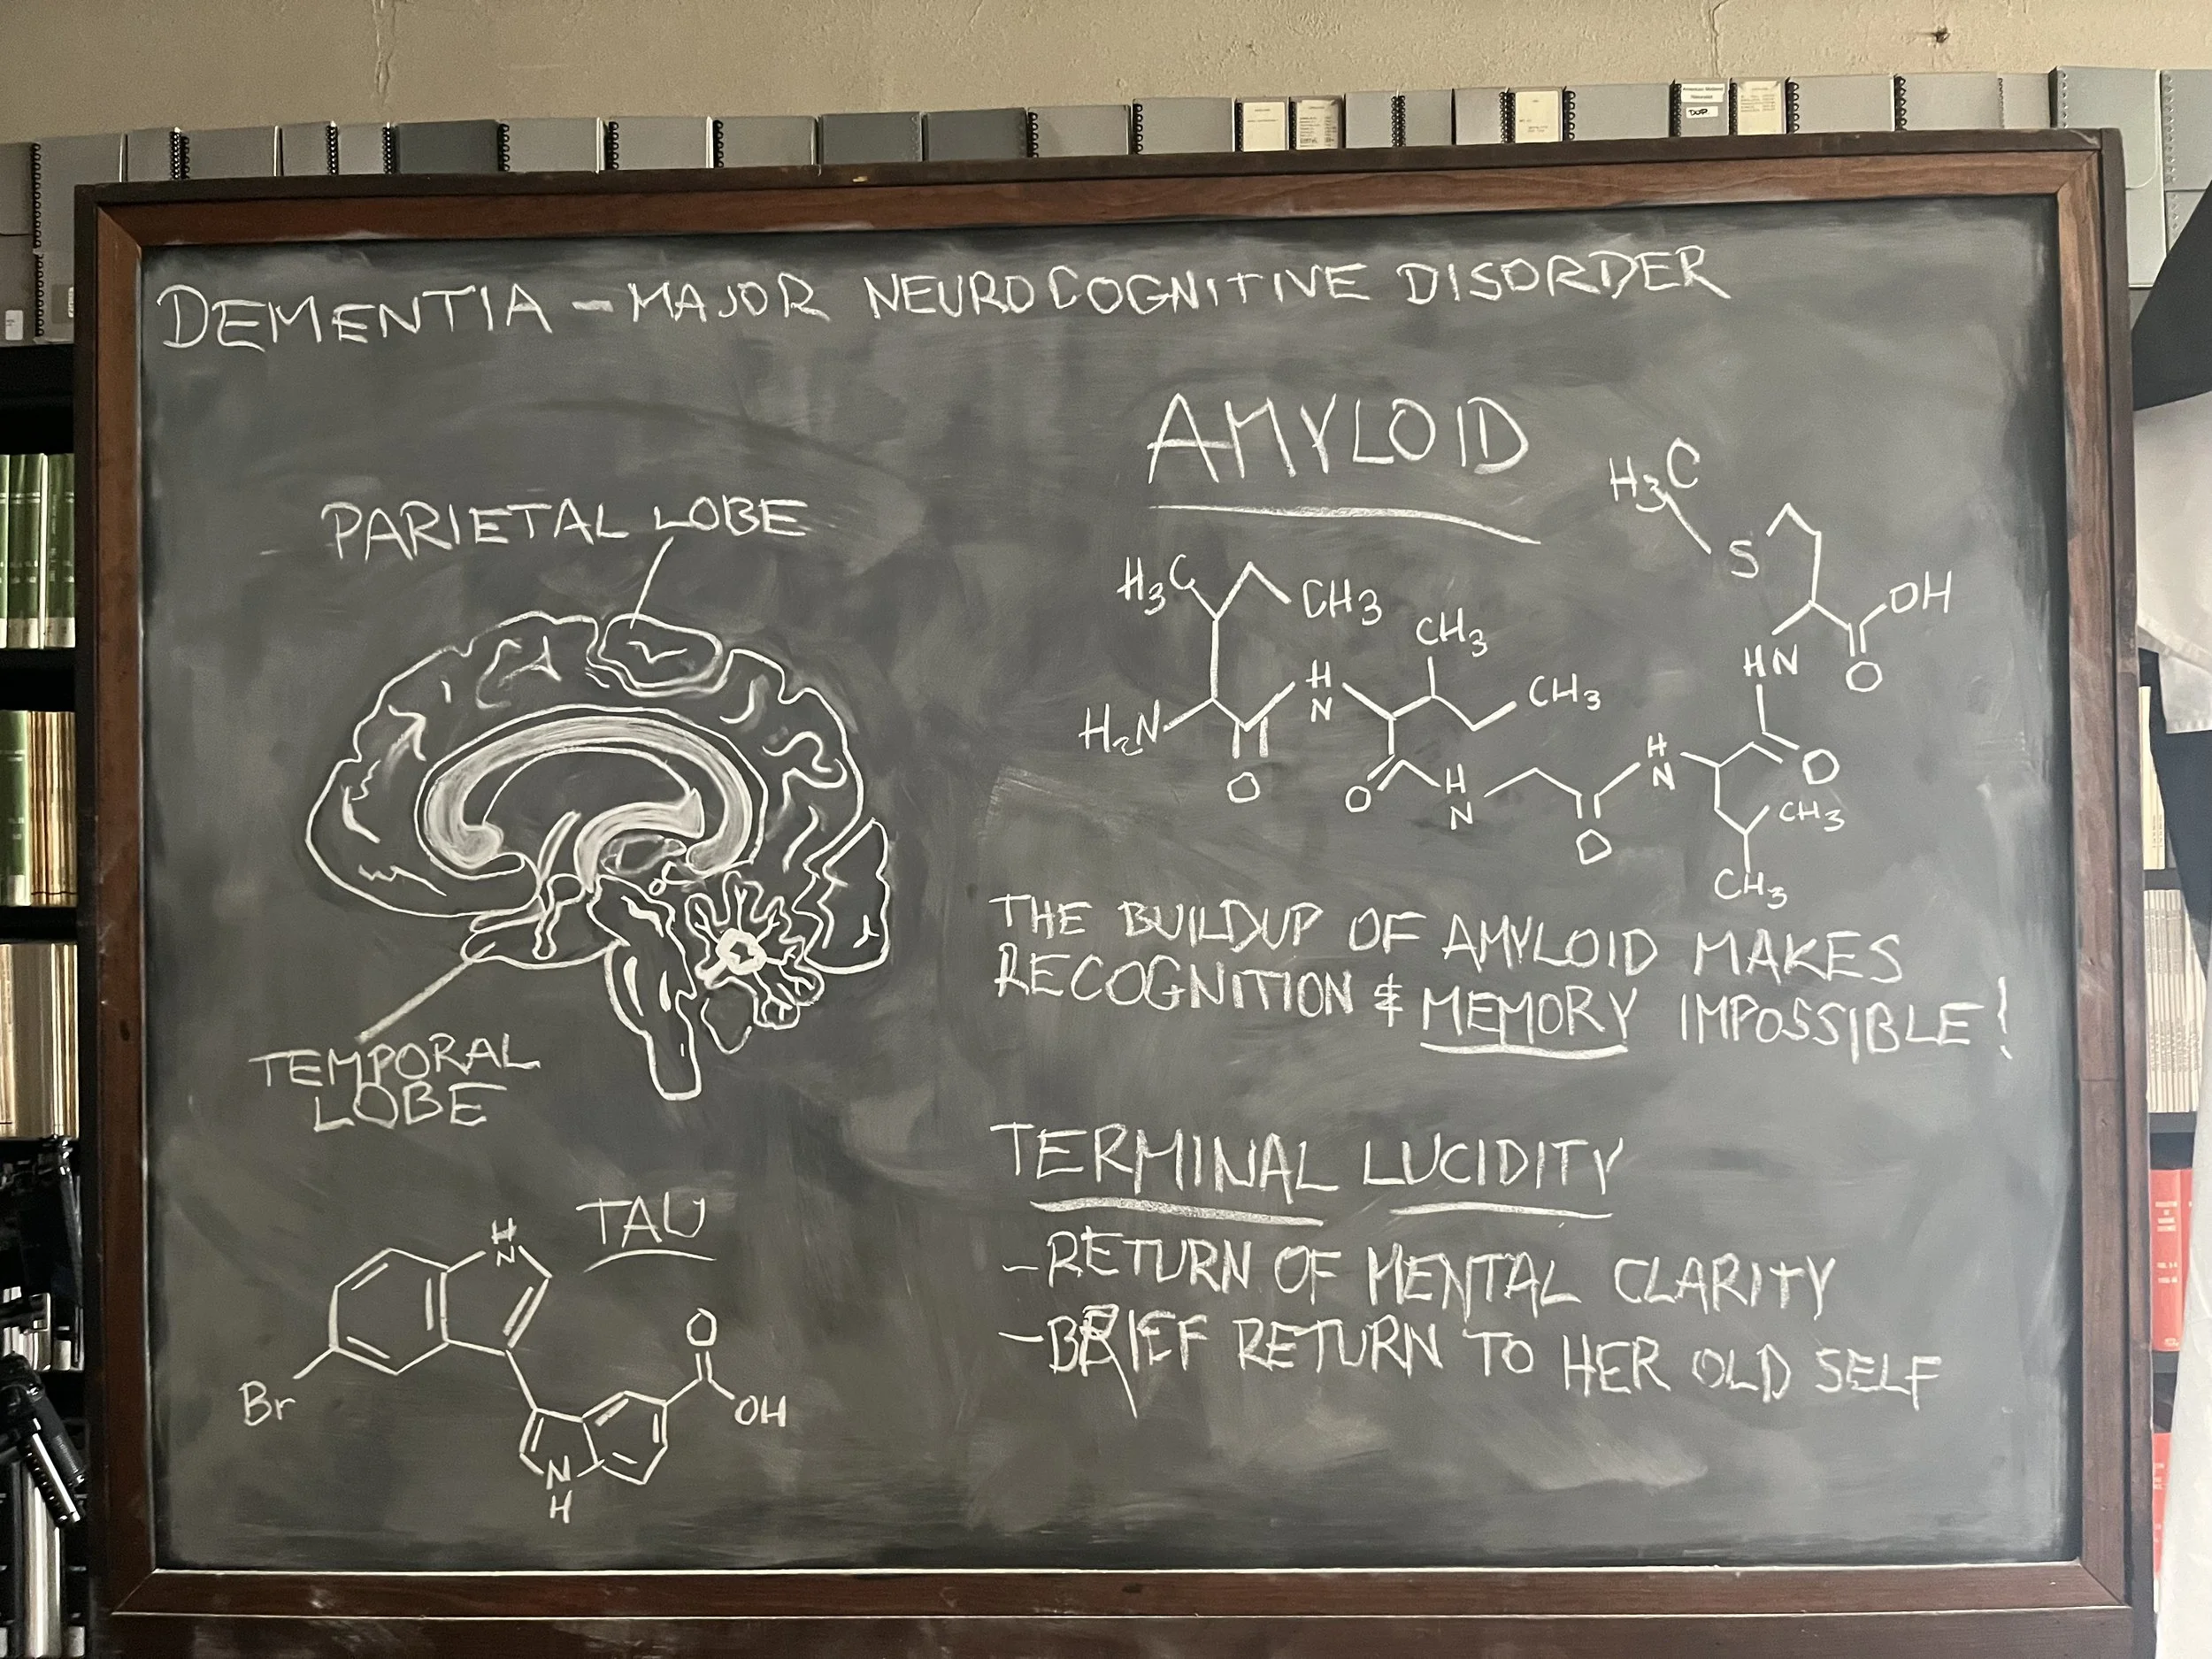 DEMENTIA - MAJOR NEUROCOGNITIVE DISORDER
AMYLOID
PARIETAL LOBE
TEMPORAL
LOBE
H3C
S
OH
O
HN
H3C
CH3
CH3
CH3
H2N
H
N
O
O
H
N
O
H
N
O
CH3
CH3
THE BUILDUP OF AMYLOID MAKES
RECOGNITION & MEMORY IMPOSSIBLE!
TERMINAL LUCIDITY
-RETURN OF MENTAL CLARITY
-BRIEF RETURN TO HER OLD SELF
TAU
H
N
Br
O
OH
N
H
DUP.